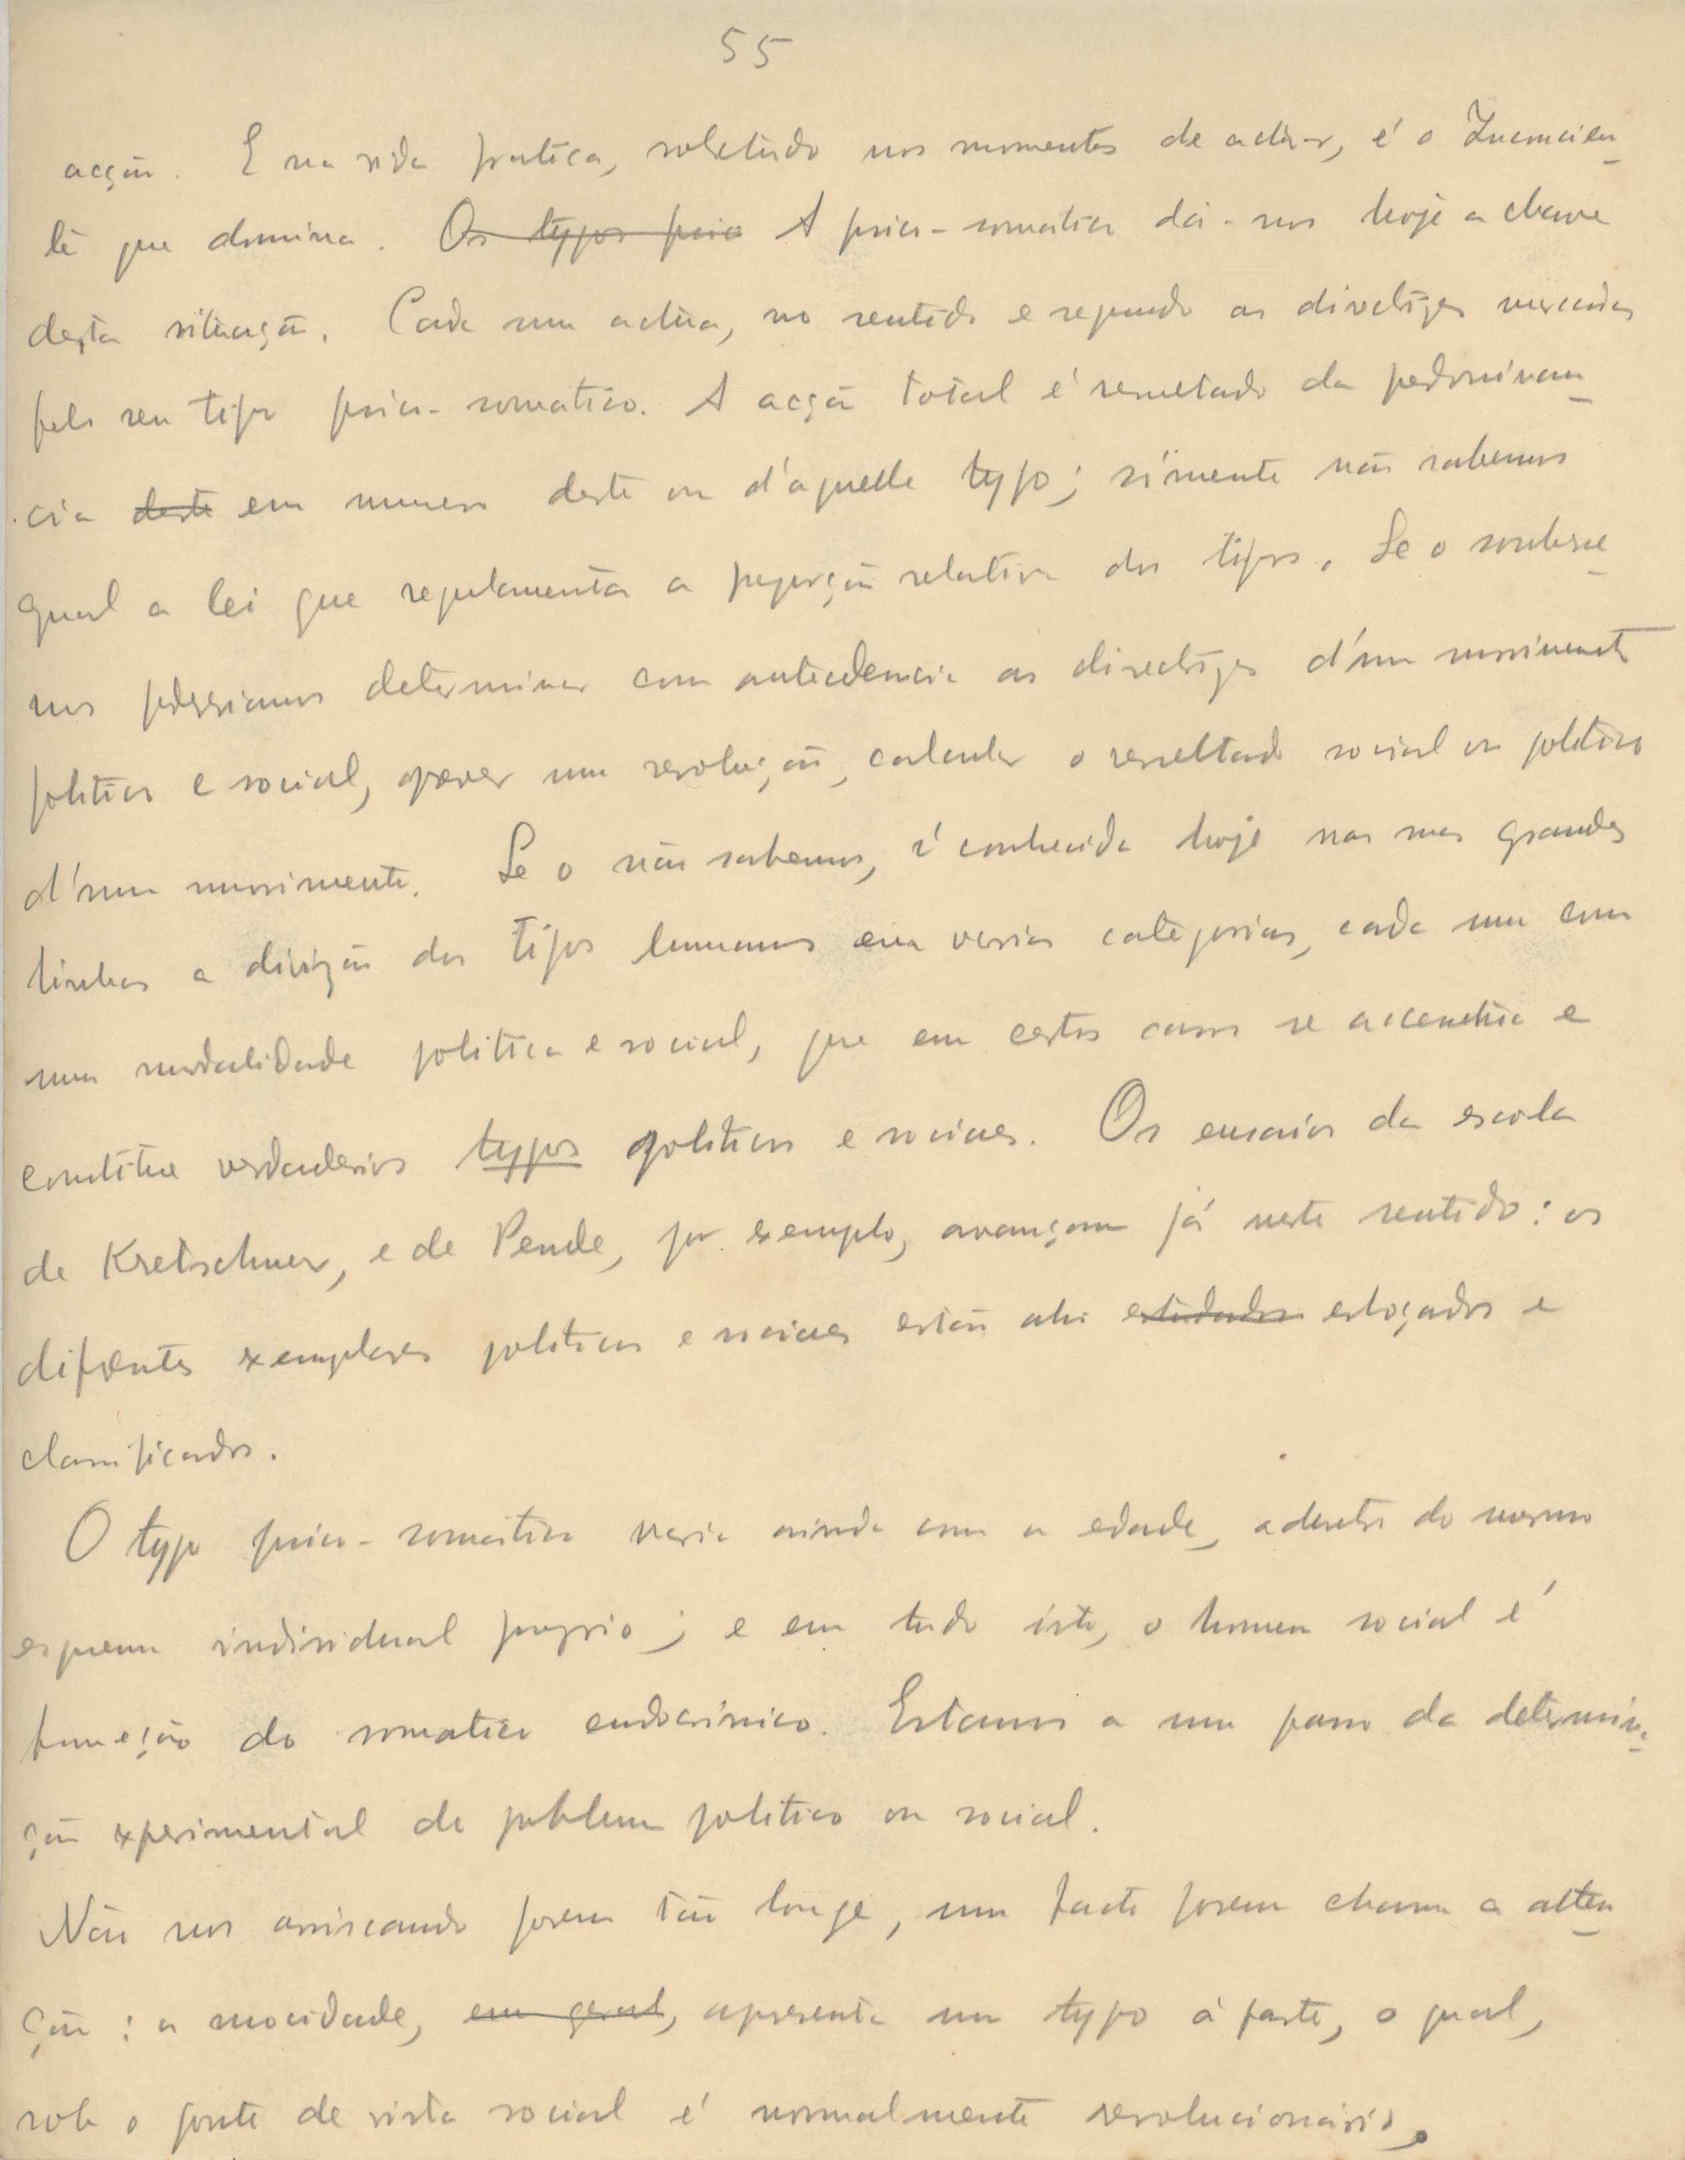 55
acção. E na vida pratica, sobretudo nos momentos de actuar, é o Inconscien-
te que domina. Os typos psico A psico-somatica dá-nos hoje a chave
desta situação. Cada um actua, no sentido e segundo as directizes marcadas
pelo seu tipo psico-somatico. A acção total é resultado da predominan-
cia deste em numero deste ou d'aquelle typo; sómente não sabemos
qual a lei que regulamenta a proporção relativa dos tipos. Se o soubesse-
mos poderiamos determinar com antecedencia as directizes d'um movimento
politico e social, prever uma revolução, calcular o resultado social ou politico
d'um movimento. Se o não sabemos, é conhecida hoje nas suas grandes
linhas a divizão dos tipos humanos em varias categorias, cada uma com
uma modalidade politica e social, que em certos casos se accentua e
constitue verdadeiros typos politicos e sociaes. Os ensaios da escola
de Kretschmer, e de Pende, por exemplo, avançam já neste sentido: os
diferentes exemplares politicos e sociaes estão ahi estudados esboçados e
classificados.
O typo psico-somatico varia ainda com a edade, adentro do mesmo
esquema individual proprio; e em tudo isto, o homem social é
funcção do somatico endocrinico. Estamos a um passo da determina-
ção experimental do problema politico ou social.
Não nos arriscando porem tão longe, um facto porem chama a atten-
ção: a mocidade, em geral, apresenta um typo á parte, o qual,
sob o ponto de vista social é normalmente revolucionario.